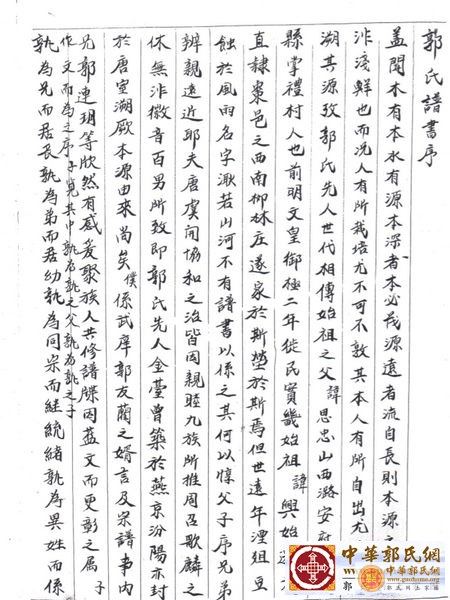 郭氏譜書序
蓋聞木有本水有源本深者木必茂源遠者流自長則本源之
洵淺鮮也而況人有所栽培尤不可不敦其本人有所自出尤
溯其源攷郭氏先人世代相傳始祖之父諱思忠山西潞安府
縣掌禮村人也前明文皇御極二年徙民實畿始祖諱興始
直隸棗邑之西南柳林庄遂家於斯塋於斯焉但世遠年湮狙豆
蝕於風雨名字渺若山河不有譜書以係之其何以惇父子序兄弟
辨親遠近耶夫唐虞開協和之治皆因親睦九族所推周召歌麟之
休無非徽音百男所致即郭氏先人金臺曾築於燕京汾陽亦封
於唐室溯厥本源由來尚矣僕係武庠郭友蘭之婿言及宗譜事內
兄郭連玥等欣然有感爰聚族人共修譜牒因藍文而更彰之属子
作文而為之序子覓其中孰為孰之父孰為孰之子
孰為兄而居長孰為弟而居幼孰為同宗而継統緒孰為異姓而係
中華郭氏網
郭
www.guohome.org